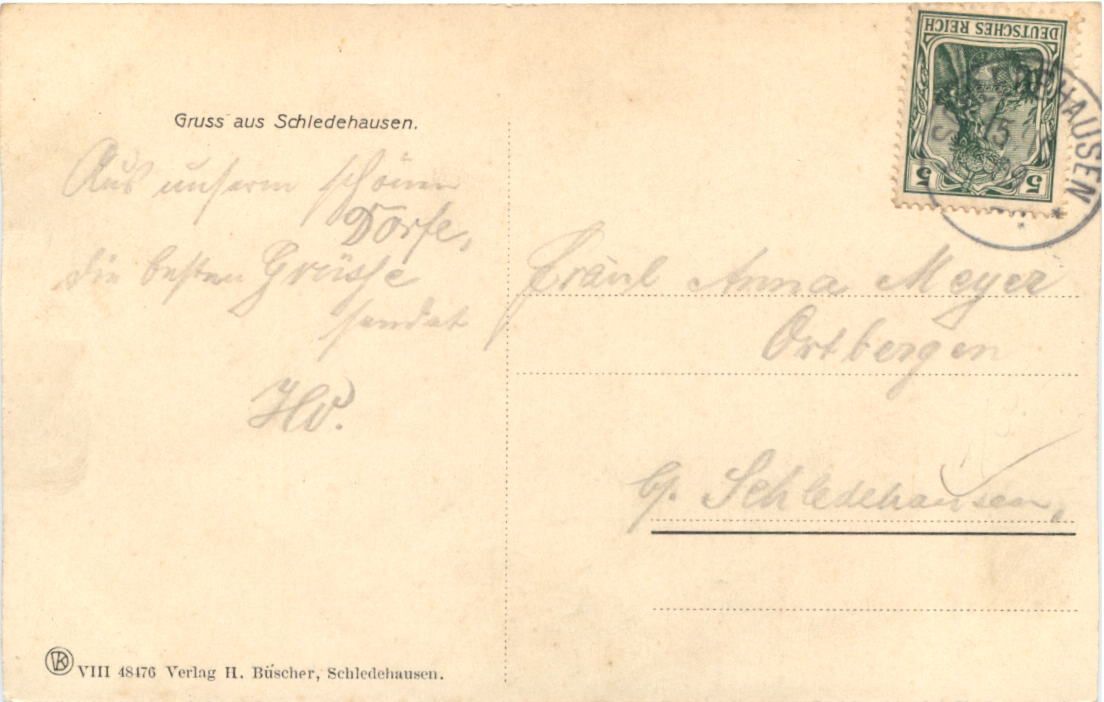 Gruss aus Schledehausen.
Aus unserm schönen
Dorfe,
die besten Grüsse
sendet
DEUTSCHES REICH
5 5
HAUSEN
15
Fräul Anna Meyer
Ortbergen
b/. Schledehausen,
VIII 48476 Verlag H. Büscher, Schledehausen.